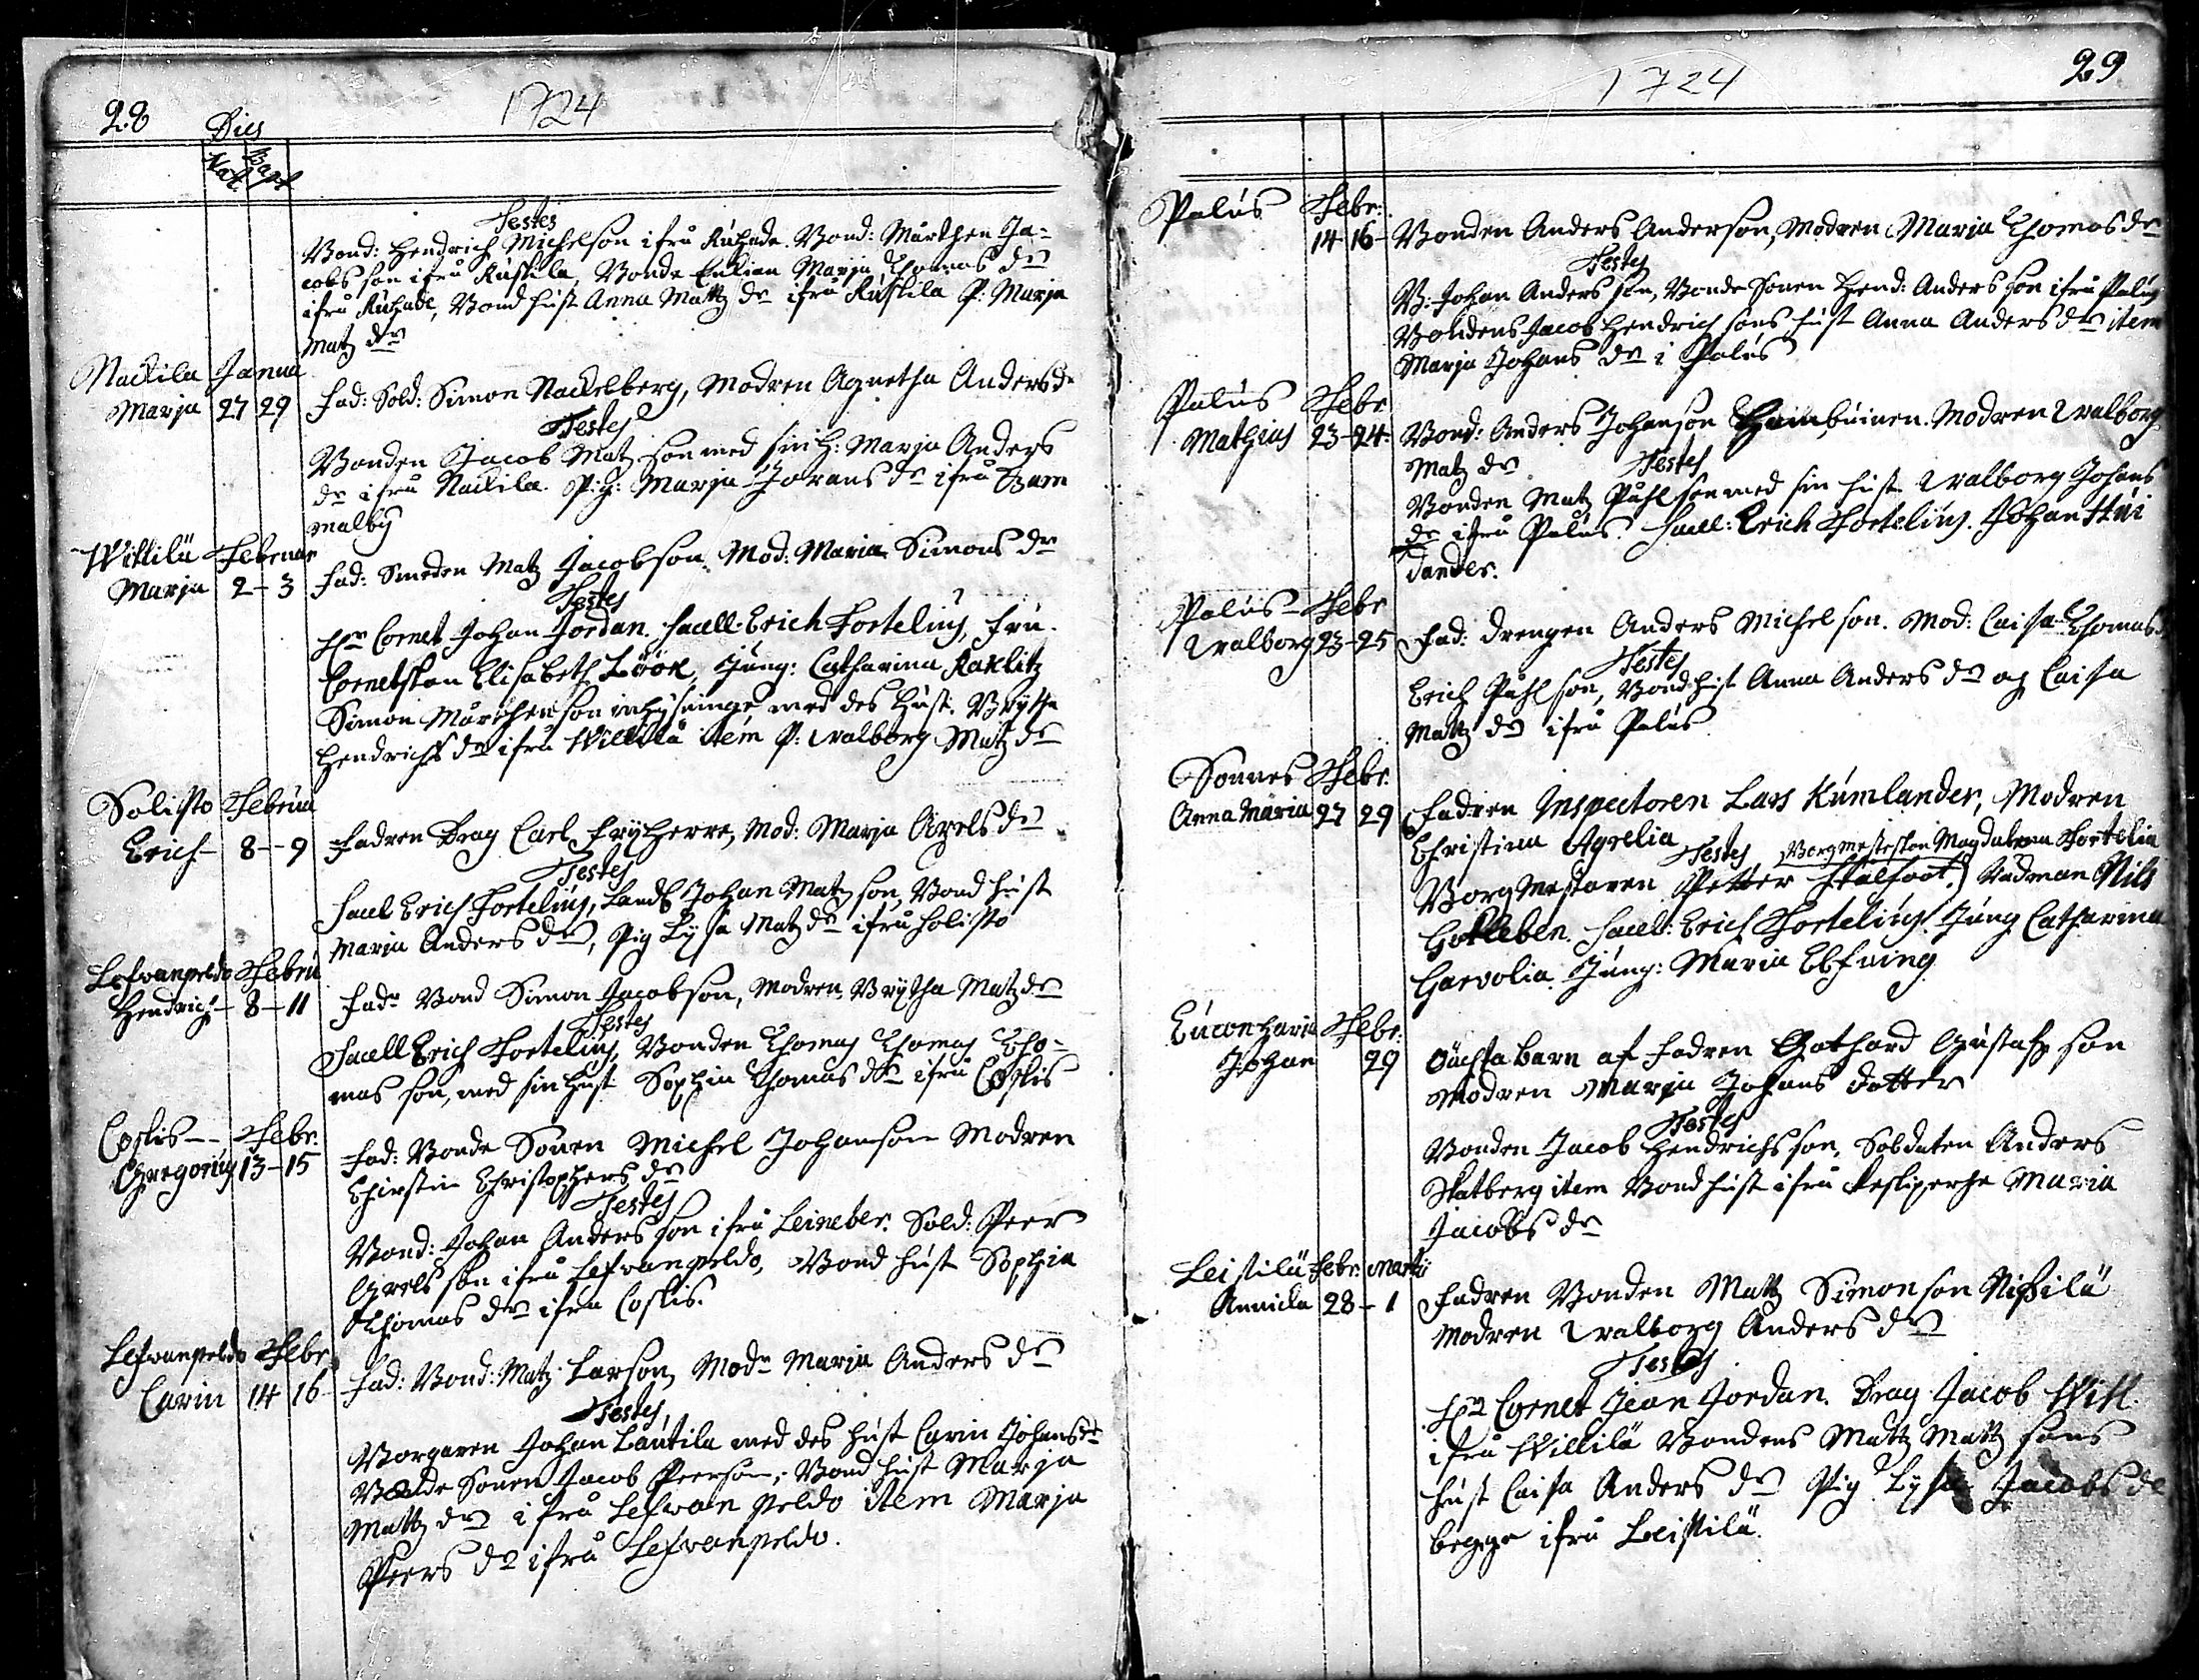 28 1724
Dies
Nat. Bapt
Testes
Bond: Hendrich Michelson ifrå Bond: Mårthen Ja-
cobs son ifrå Bonde Enkian Marja Thomas dr
ifrå Bond hust Anna Mattz dr ifrå P: Marja
Matz dr
Nackila Janua
Marja 27 29 Fad: Sold: Simon Nackelberg, Modren Agnetha Anders d
Testes
Bonden Jacob Matz son med sin h: Marja Anders
dr ifrå Nackila. Pig: Marja Jörans dr ifrå Gam
malby
Willilä Februar
Marja 2-3 Fad: Smeden Matz Jacobson. Mod: Maria Simons dr
Testes
Hr Cornet Johan Jordan. Sacell. Erich Fortelius, Fru.
Cornetskan Elisabeth Löök, Jung: Catharina Raklitz
Simon Mårthenson inhysninge med des Hust. Brytha
Hendrichs dr ifrå Willilä item P: Walborg Matz dr
Solisto Februa
Erich 8--9 Fadren Drag Carl Fryherre, Mod: Marja Axels dr
Testes
Sacel Erich Fortelius, Landb Johan Matz son, Bond hust
Maria Anders dr, Pig Lysa Matz dr ifrå Solisto
Lefvanpeldo Febru
Hendrich 8-11 Fadr Bond Simon Jacobson, Modren Brytha Matz dr
Testes
Sacell Erich Fortelius, Bonden Thomas Thomas Tho-
mas son, med sin hust Sophia Thomas dr ifrå Coskis
Coskis-- Febr.
Gregorius 13-15 Fad: Bonde Sonen Michel Johanson Modren
Chirstin Christophers dr
Testes
Bond: Johan Anders son ifrå Leineber. Sold: Peer
Axels son ifrå Lefvanpeldo, Bond hust Sophia
Thomas dr ifrå Coskis.
Lefvanpeldo Febr
Carin 14 16 Fad: Bond: Matz Larson, Modr Maria Anders dr
Testes
Borgaren Johan Lautila med des hust Carin Johans dr
Bonde Sonen Jacob Peerson, Bond hust Marja
Mattz dr ifrå Lefwan peldo item Marja
Peers dr ifrå Lefvanpeldo.
1724 29
Palus Febr:
14-16- Bonden Anders Anderson, Modren Maria Thomas dr
Testes
B: Johan Anders son, Bonde Sonen Hend: Anders son ifrå Palus
Bondens Jacob Hendrich sons hust Anna Anders dr item
Marja Johans dr i Palus
Palus Febr
Mathias 23-24 Bond: Anders Johanson Modren Walborg
Matz dr
Testes
Bonden Matz Påhl son med sin hust Walborg Johans
dr ifrå Palus. Sacell: Erich Fortelius. Johan
dander.
Palus- Febr
Walborg 23-25 Fad: Drengen Anders Michel son. Mod: Caisa Thomas
Testes
Erich Påhl son, Bond hust Anna Anders dr og Caisa
Mattz dr ifrå Palus
Sonnes Febr.
Anna Maria 27 29 Fadren Inspectoren Lars Kumlander, Modren
Christina Agrelia
Testes Borgmesterskan Magdalena Fortelia
Borgmestaren Petter Stålfoot. Rådman Nils
Gotleben. Sacel: Erich Fortelius. Jung Catharina
Garvolia. Jung: Maria Elfving
Febr:
Johan 29 Oächta barn af Fadren Gothard Gustafs son
Modren Marja Johans dotter
Testes
Bonden Jacob Hendrichs son, Soldaten Anders
Skatberg item Bond hust ifrå Maria
Jacobs dr
Leistilä Febr: Martii
Annicka 28-1 Fadren Bonden Mattz Simonson Nissilä
Modren Walborg Anders dr
Testes
Hr Cornet Jean Jordan. Drag Jacob Will.
ifrå Willilä Bondens Mattz Mattz sons
hust Caisa Anders dr Pig Lysa Jacobs dr
begge ifrå Leistilä.